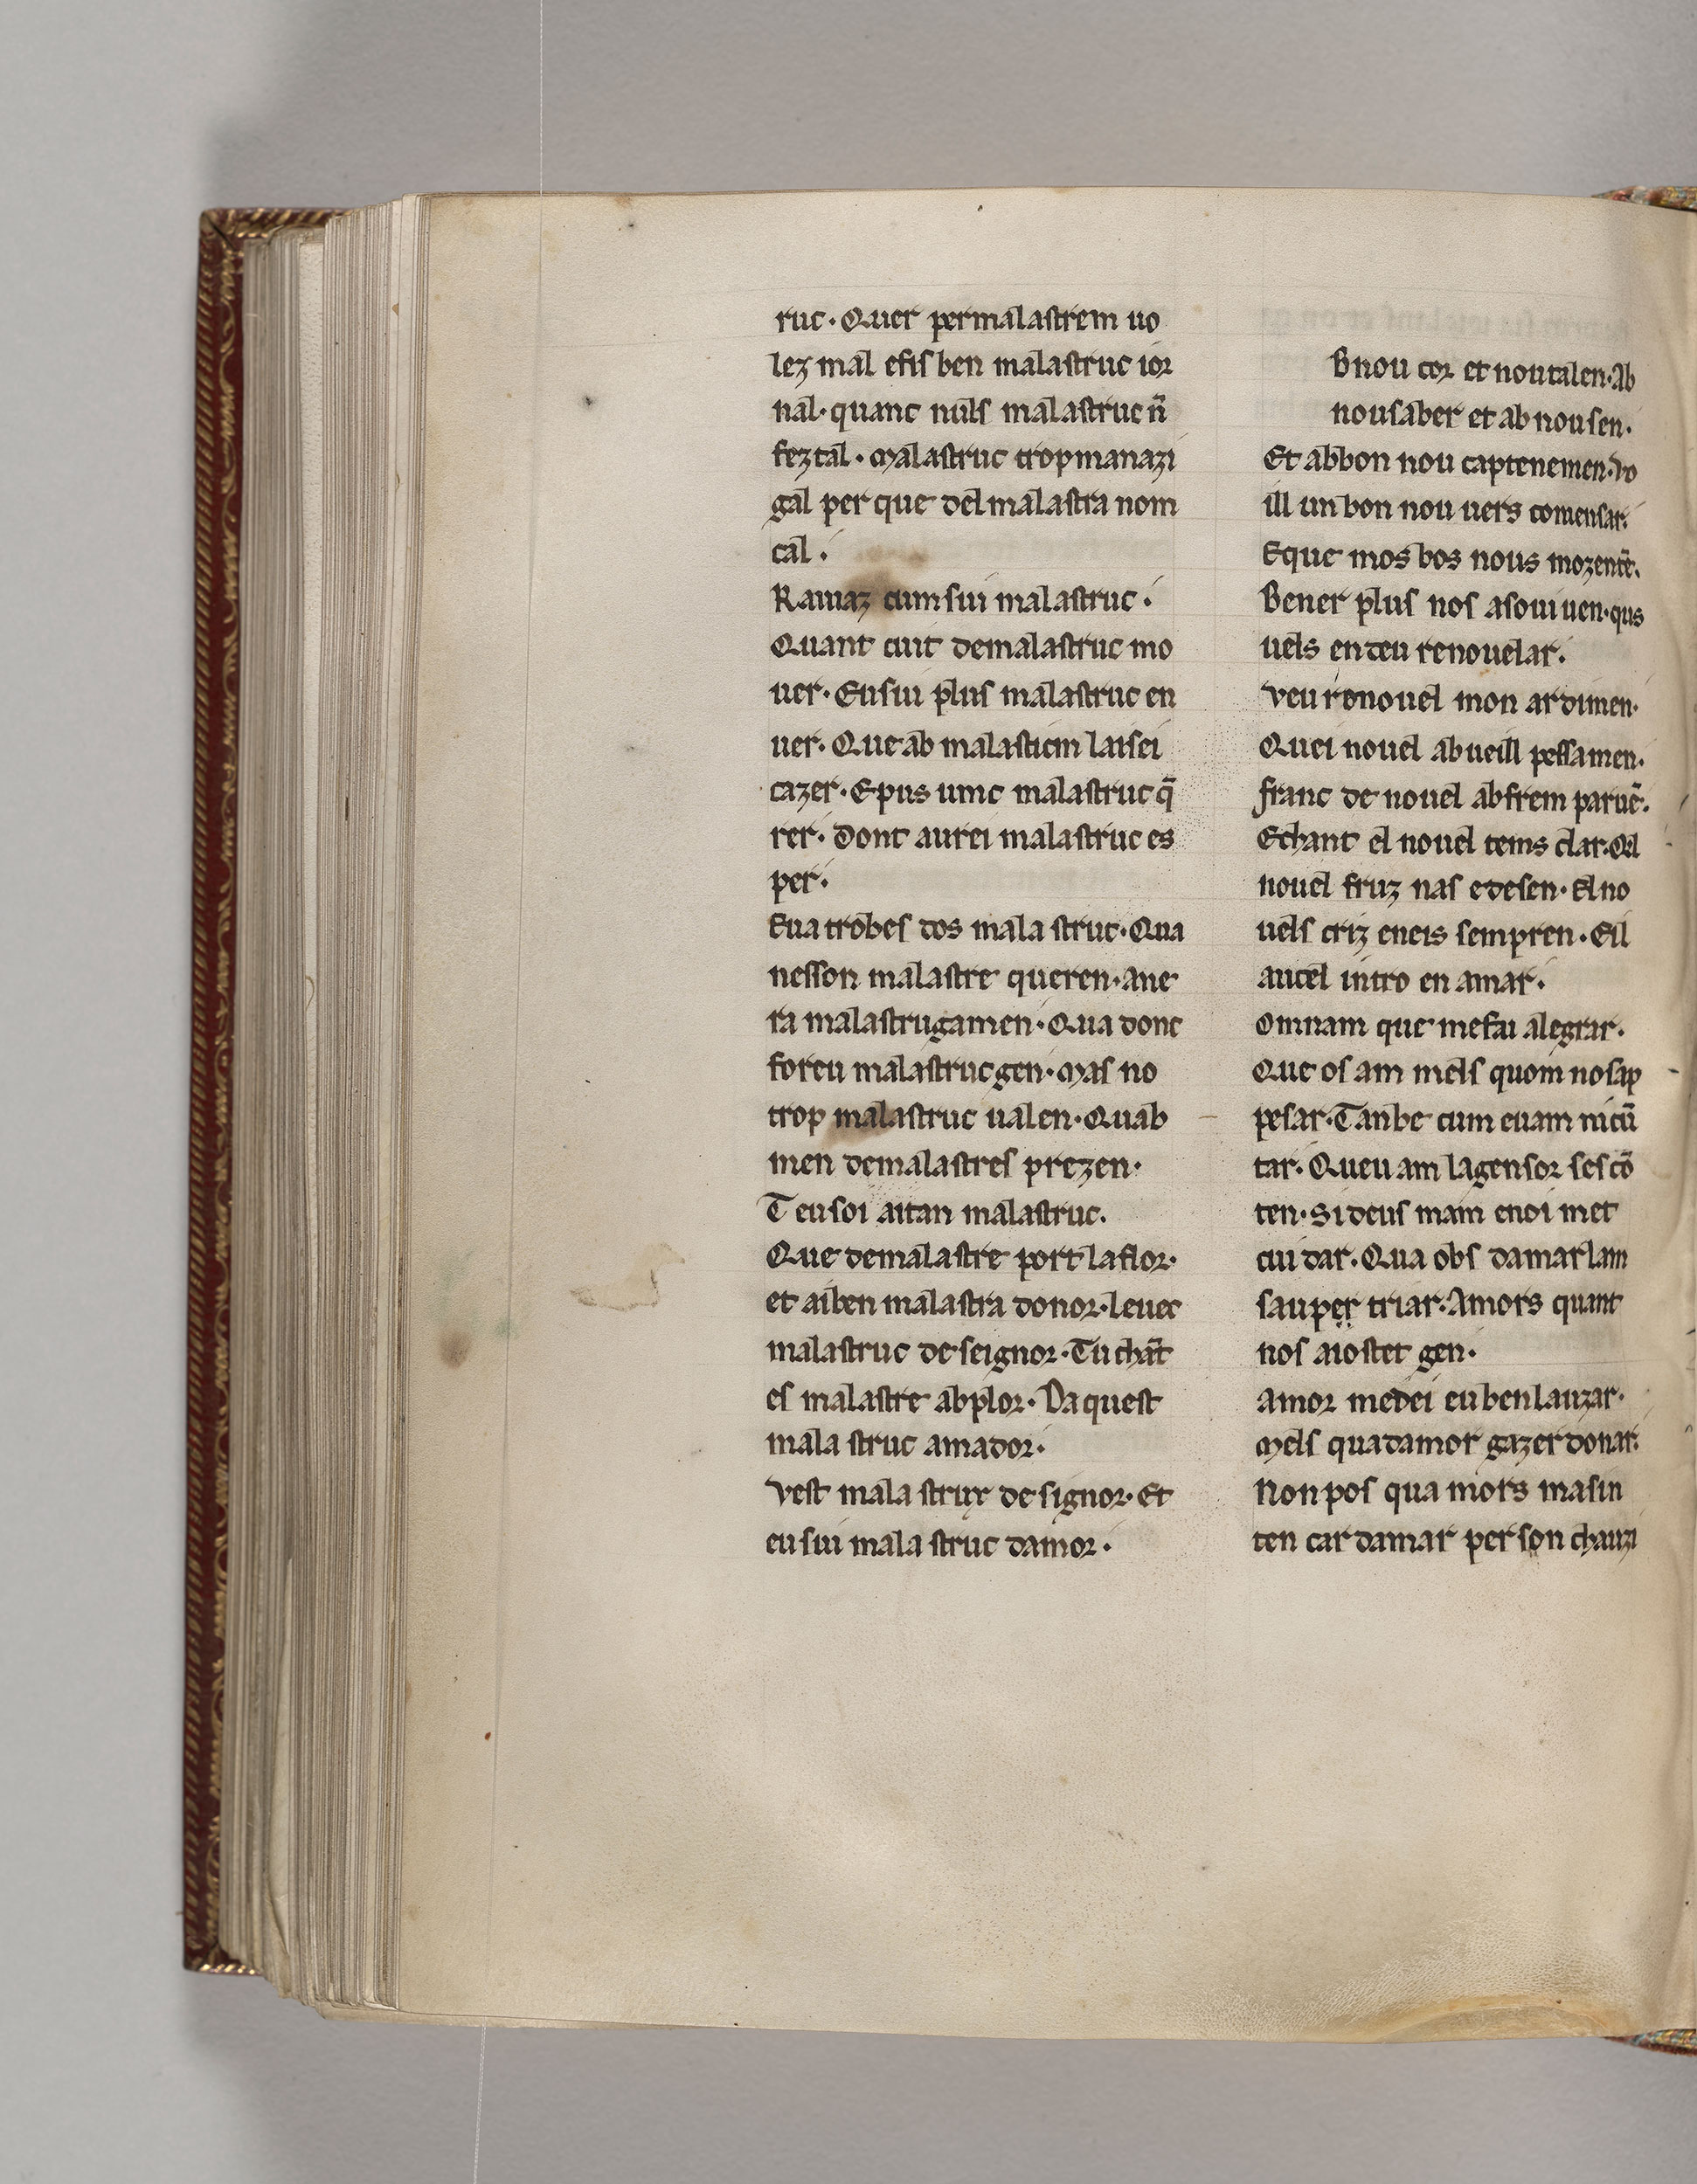 ruc· Quer permalastrem uo
lez mal efis ben malastruc ior
nal· quanc nuls malastruc ñ
feztal· Malastruc tropmanazi
gal per que delmalastra nom
cal·
Rauiaz cumsui malastruc·
Quant cuit demalastruc mo
uer· Eusui plus malastruc en
uer· Queab malastiem laisei
cazer· Epus umc malastruc q̄
rer· Dont aurei malastruc es
per·
Eua trobes tos mala struc· Qua
nesson malastre queren· ane
ra malastrugamen· Qua donc
foreu malastrucgen· Mas no
trop malastruc ualen· Quab
men demalastres prezen·
T eusoi aitan malastruc.
Que demalastre port laflor·
et aiben malastra donor· leuec
malastruc de seignor· Tu chāt
es malastre abplor· Daquest
mala struc amador·
Vest mala strux de signor· Et
eusui mala struc damor·
Bnou cor et noutalen· Ab
nousaber et ab nousen·
Et abbon nou captenemen· Vo
ill un bon nou uers comensar·
Eque mos bos nous mozentē·
Bener plus nos asoui uen· qus
uels enteu renouelar·
Veu renouel mon ardimen·
Quei nouel abueill pessamen·
franc de nouel abfrem paruē·
Echant el nouel tems clar· Qil
nouel fruz nas edesen· El no
uels criz eneis sempren· Eil
aucel intro en amar·
Omnam que mefai alegrar·
Que os am mels quom nosap
pesar· Tanbe cum euam nicū
tar· Queu am lagensor ses cō
ten· Sideus mam enoi met
cui dar· Qua obs damarlam
sauper triar· Amors quant
nos aiostet gen·
Amor medei eubenlauzar·
Mels quadamor gazerdonar·
Nonpos qua mors masin
ten cardamar per son chauzi